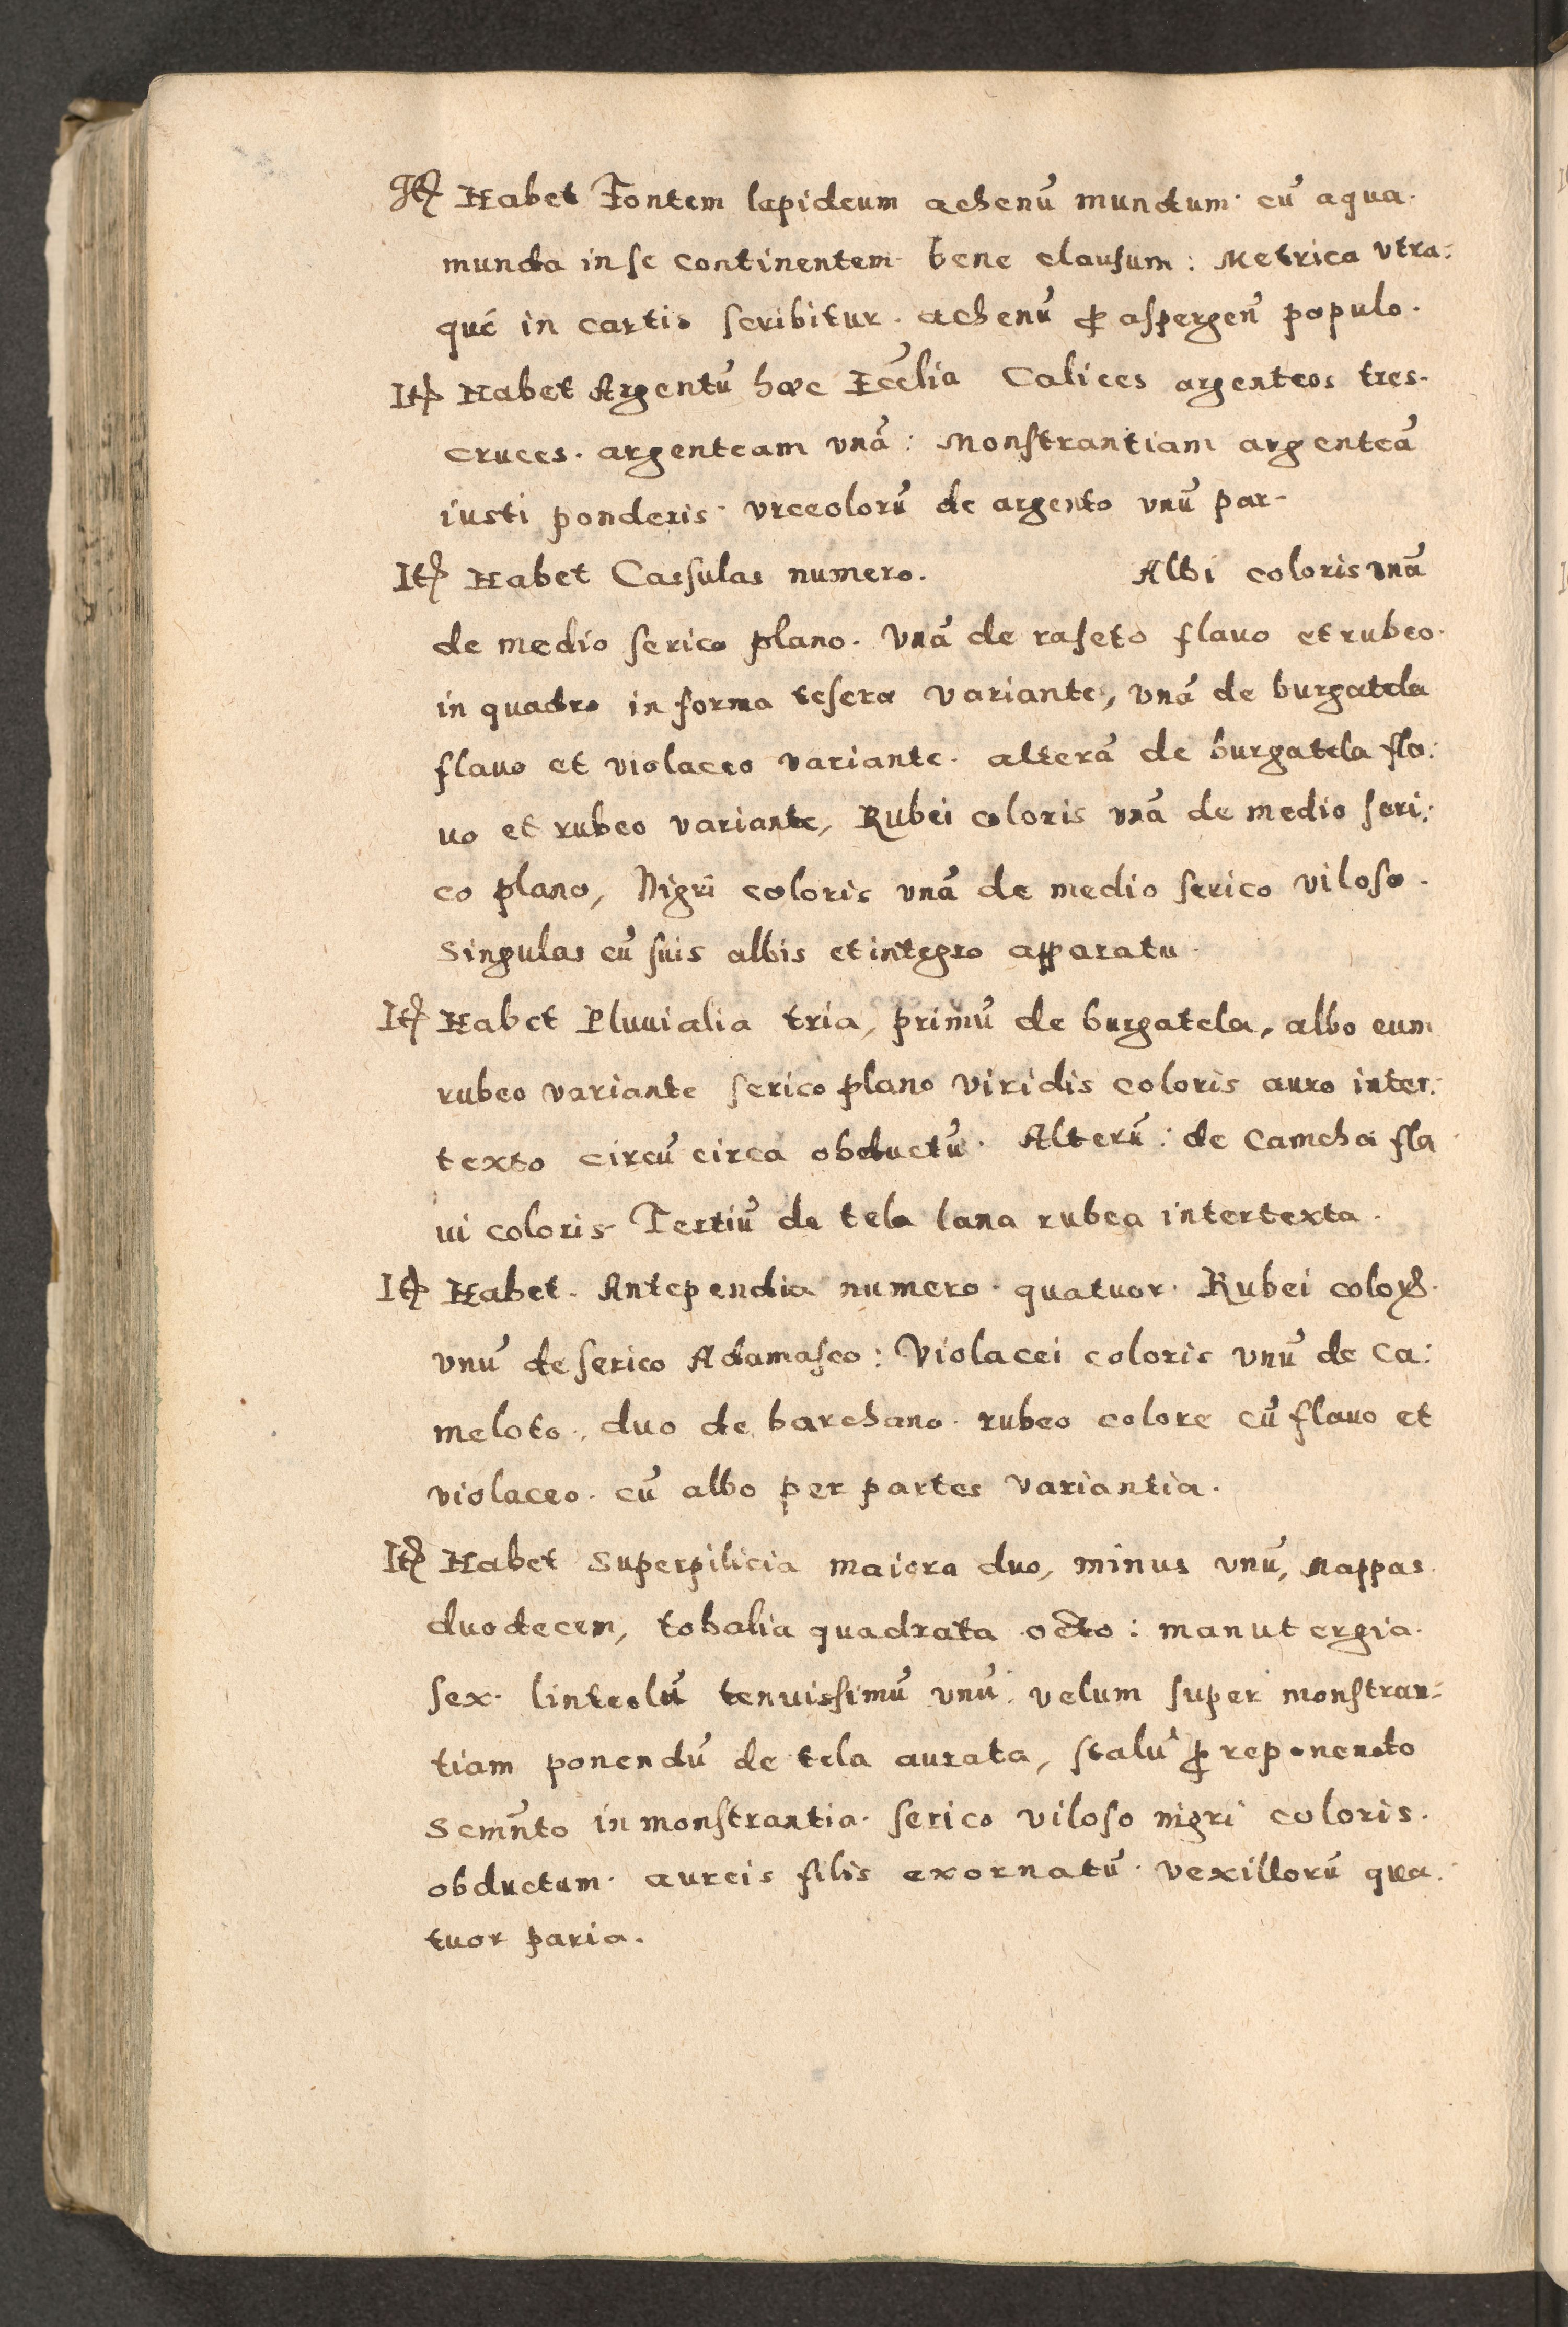 Itꝫ Habet Fontem lapideum achenū mundum· cū aqua·
munda in se continentem· bene clausum: Metrica vtra:
qué in cartis scribitur· achenū ꝓ aspergeñ populo·
Itꝫ Habet Argentū hæc Eccĺia Calices argenteos tres·
cruces· argenteam vnā: Monstrantiam argenteā
iusti ponderis· vrceolorū de argento vnū par·
Itꝫ Habet Cassulas numero. Albi coloris vnā
de medio serico plano. Vnā de raseto flauo et rubeo·
in quadro in forma teseræ variante, vnā de burgatela
flauo et violaceo variante· alterā de burgatela fla:
uo et rubeo variante, Rubei coloris vnā de medio seri:
co plano, Nigri coloris vnā de medio serico viloso·
Singulas cū suis albis et integro apparatu·
Itꝫ Habet Pluuialia tria, primū de burgatela, albo cum
rubeo variante serico plano viridis coloris auro inter:
texto circū circa obductū· Alterū: de Camcha fla
ui coloris· Tertiū de tela lana rubea intertexta·
Itꝫ Habet· Antependia numero· quatuor· Rubei coloꝝ·
vnū de serico Adamasco: Violacei coloris vnū de Ca:
meloto·, duo de barchano· rubeo colore cū flauo et
violaceo· cū albo per partes variantia·
Itꝫ Habet Superpilicia maiora duo, minus vnū, Nappas·
duodecem, tobalia quadrata octo: manutergia·
sex· linteolū tenuissimū vnū· velum super monstran:
tiam ponendū de tela aurata, scalū ꝓ reponendo
Scm̄nto in monstrantia· serico viloso nigri coloris·
obductum· aureis filis exornatū· vexillorū qua·
tuor paria.